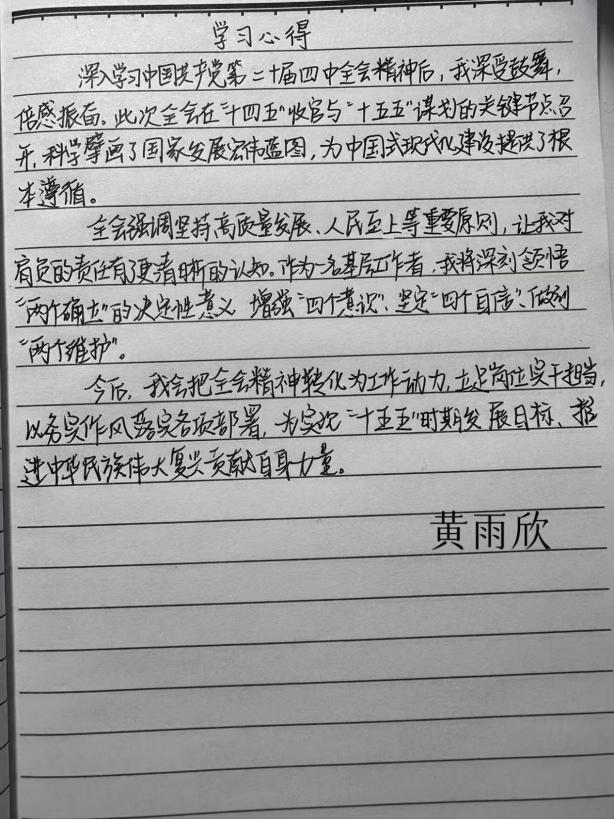 学习心得
深入学习中国共产党第二十届四中全会精神后，我深受鼓舞，
倍感振奋。此次全会在“十四五”收官与“十五五”谋划的关键节点召
开，科学擘画了国家发展宏伟蓝图，为中国式现代化建设提供了根
本遵循。
全会强调坚持高质量发展、人民至上等重要原则，让我对
肩负的责任有了更清晰的认知。作为一名基层工作者，我将深刻领悟
“两个确立”的决定性意义，增强“四个意识”、坚定“四个自信”、做到
“两个维护”。
今后，我会把全会精神转化为工作动力，立足岗位实干担当，
以务实作风落实各项部署，为实现“十五五”时期发展目标、推
进中华民族伟大复兴贡献自身力量。
黄雨欣